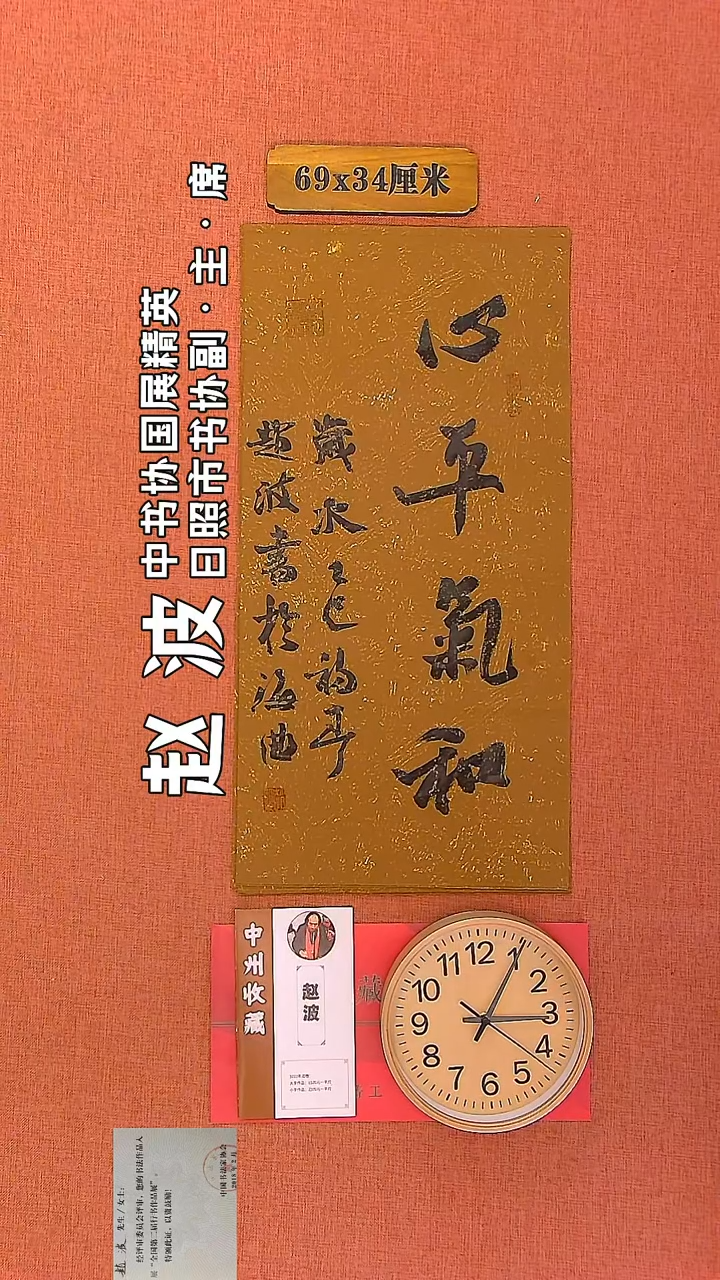 69x34厘米
赵波
中书协国展精英
日照市书协副·主·席
心平氣和
歲次乙巳初夏
趙波書於海曲
中
主
安
藏
赵波
藏
12
1
2
3
4
5
6
7
8
9
10
11
趙波 先生/女士:
经评审委员会评审,您的书法作品入
展“全国第二届行书作品展”。
特颁此证,以资鼓励!
中国书法家协会